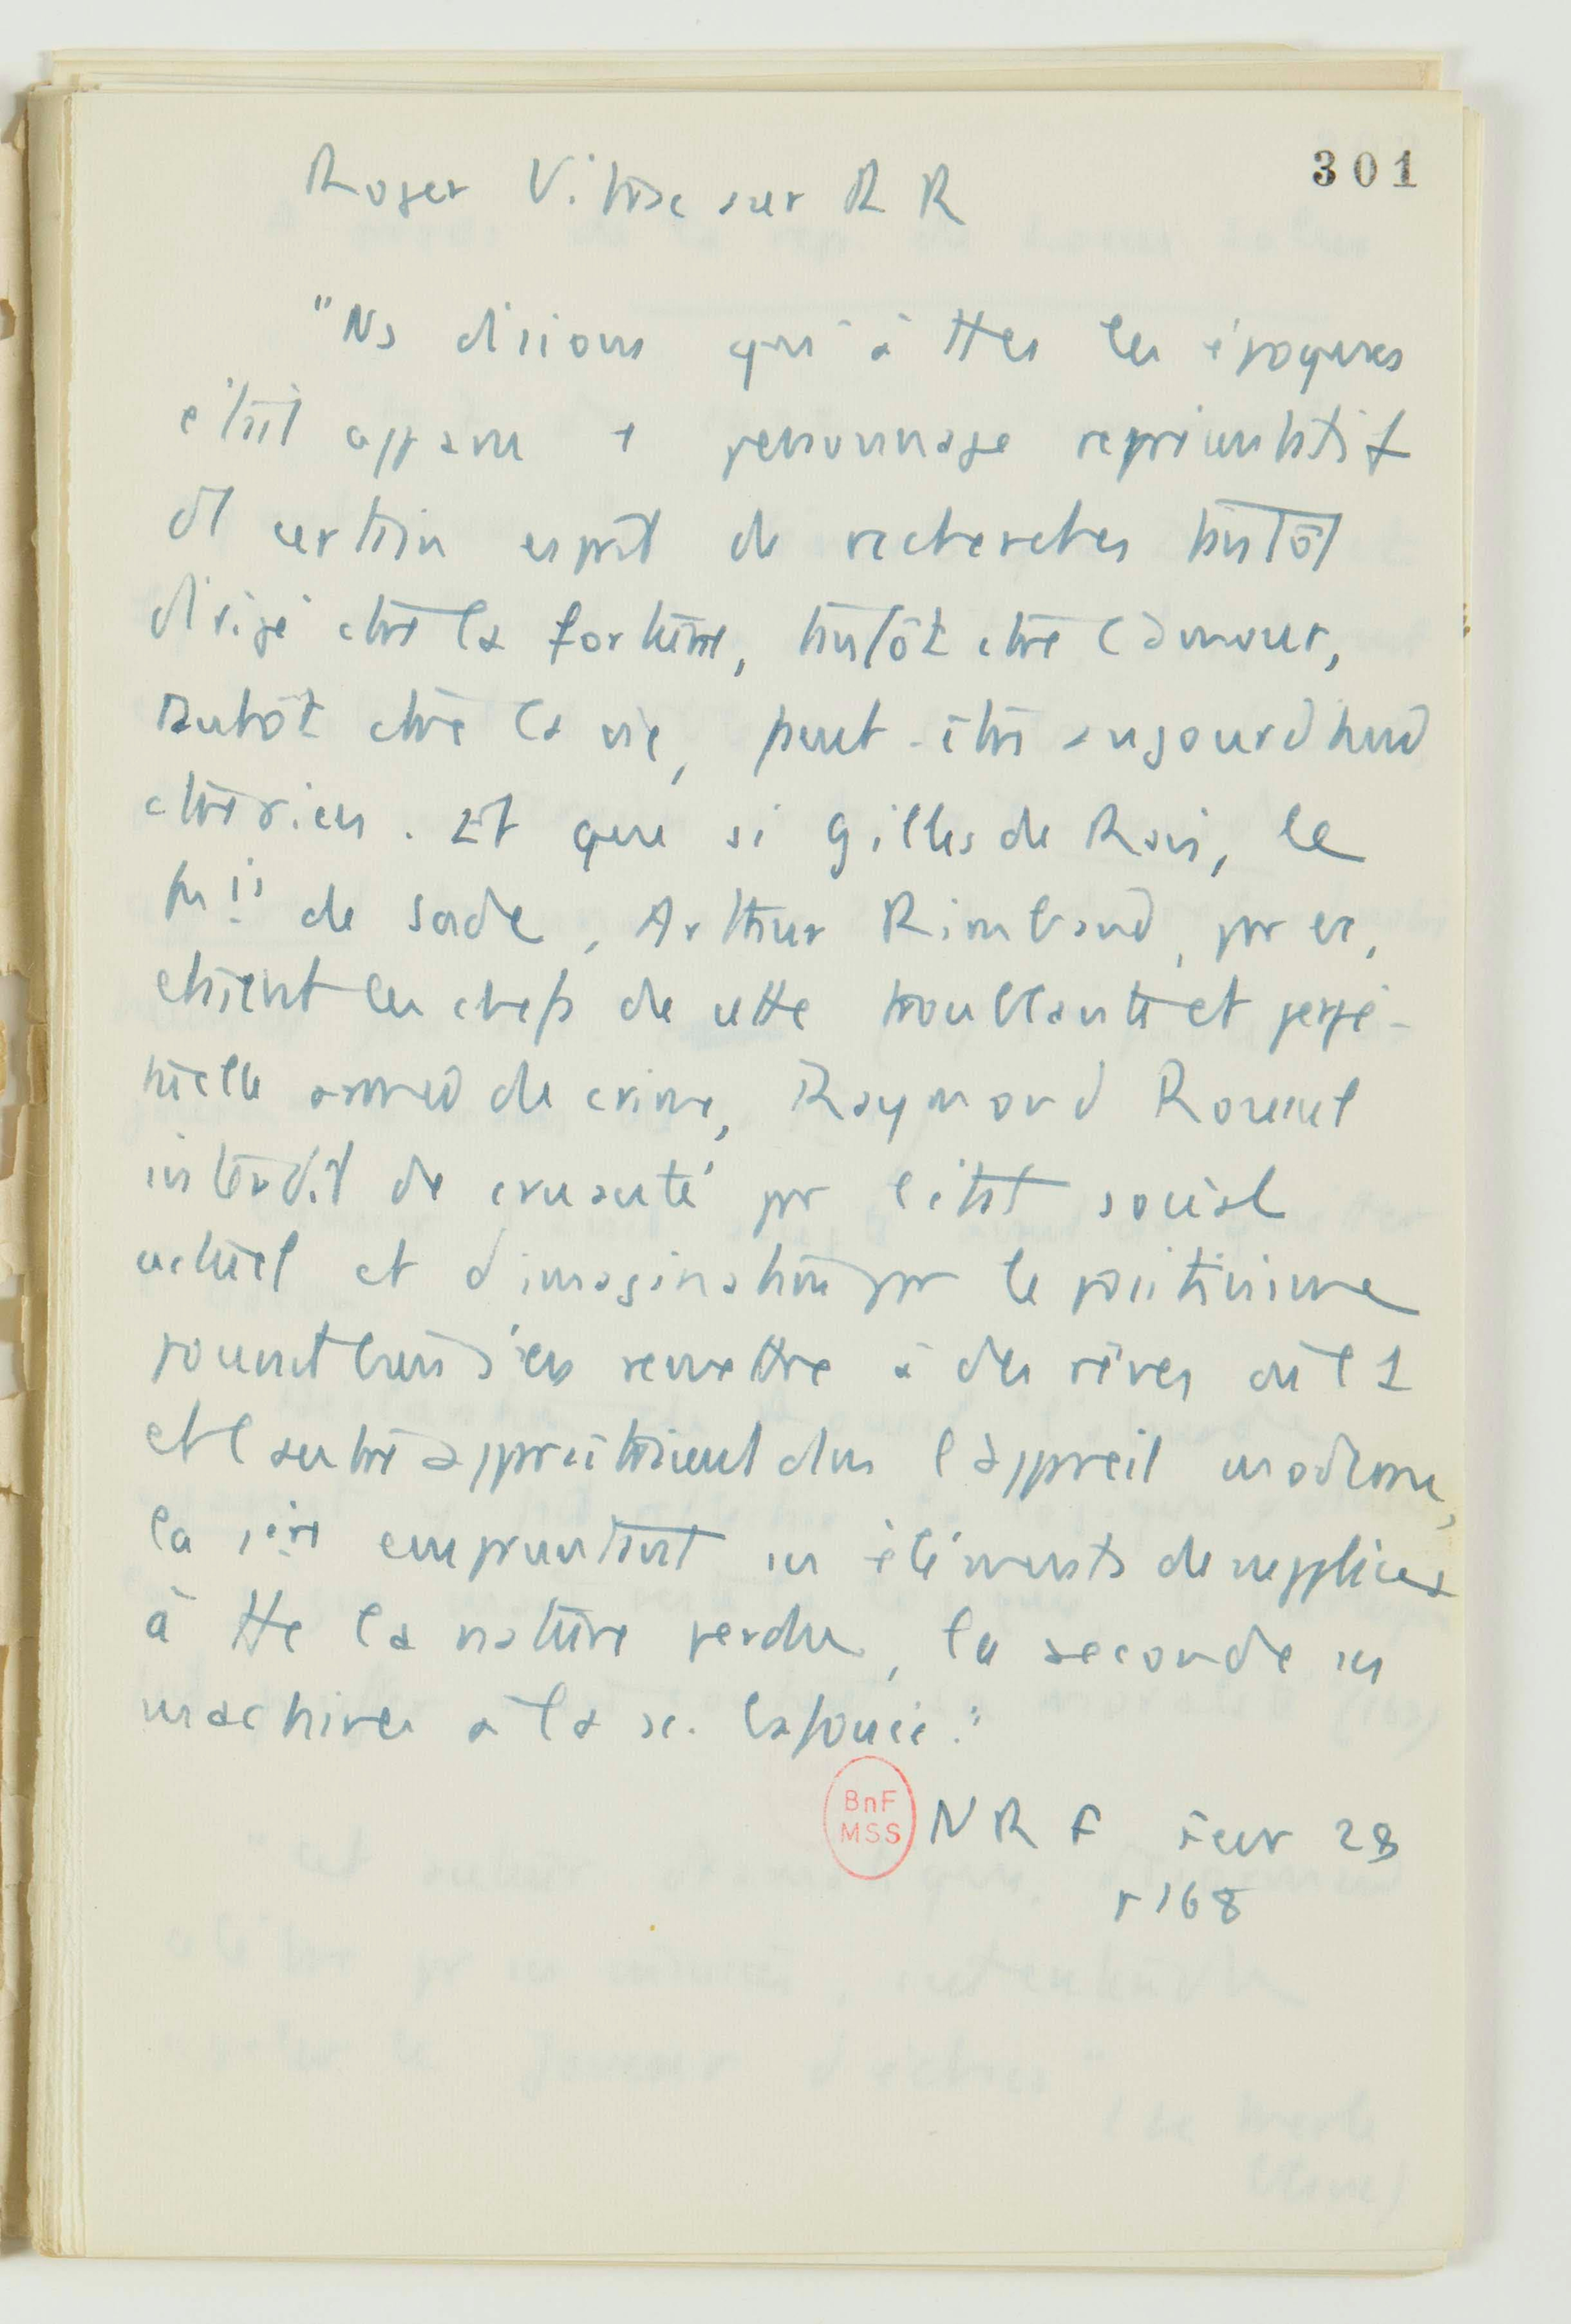 301
Roger Vitrac sur R R
"Ns disions qu'à ttes les époques
était apparu 1 personnage représentatif
d1 certain esprit de recherches tantôt
dirigé ctre la fortune, tantôt ctre l'amour,
tantôt ctre la vie, peut-être aujourd'hui
ctre rien. Et que si Gilles de Rais, le
de Sade, Arthur Rimbaud, pr ex,
étaient les chefs de cette troublante et perpé-
tuelle armée de crime, Raymond Roussel
interdit de cruauté pr l'état social
actuel et d'imagination pr le positivisme
s'en remettre à des rêves où l'1
et l'autre apparaîtraient dns l'appareil moderne,
la 1ère empruntant ses éléments de supplices
à tte la nature perdue, la seconde ses
machines à la sc. bafouée."
BnF
MSS
NRF Fevr 28
p 168